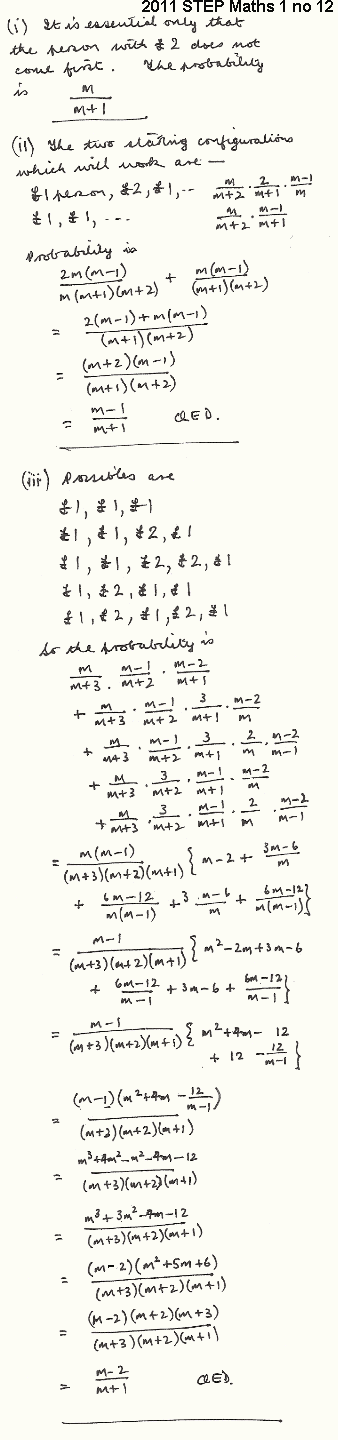 2011 STEP Maths 1 no 12
(i) It is essential only that
the person with £2 does not
come first. The probability
is m/(m+1)
(ii) The two starting configurations
which will work are —
£1 person, £2, £1, ·· m/(m+2) · 2/(m+1) · (m-1)/m
£1, £1, --- m/(m+2) · (m-1)/(m+1)
Probability is
2m(m-1)/(m(m+1)(m+2)) + m(m-1)/((m+1)(m+2))
= (2(m-1)+m(m-1))/((m+1)(m+2))
= (m+2)(m-1)/((m+1)(m+2))
= (m-1)/(m+1) QED.
(iii) Possibles are
£1, £1, £1
£1, £1, £2, £1
£1, £1, £2, £2, £1
£1, £2, £1, £1
£1, £2, £1, £2, £1
So the probability is
m/(m+3) · (m-1)/(m+2) · (m-2)/(m+1)
+ m/(m+3) · (m-1)/(m+2) · 3/(m+1) · (m-2)/m
+ m/(m+3) · (m-1)/(m+2) · 3/(m+1) · 2/m · (m-2)/(m-1)
+ m/(m+3) · 3/(m+2) · (m-1)/(m+1) · (m-2)/m
+ m/(m+3) · 3/(m+2) · (m-1)/(m+1) · 2/m · (m-2)/(m-1)
= m(m-1)/((m+3)(m+2)(m+1)) { m-2 + (3m-6)/m
+ (6m-12)/(m(m-1)) + (3m-6)/m + (6m-12)/(m(m-1)) }
= (m-1)/((m+3)(m+2)(m+1)) { m²-2m+3m-6
+ (6m-12)/(m-1) + 3m-6 + (6m-12)/(m-1) }
= (m-1)/((m+3)(m+2)(m+1)) { m²+4m- 12
+ 12 - 12/(m-1) }
= (m-1)(m²+4m - 12/(m-1))/((m+3)(m+2)(m+1))
= (m³+4m²-m²-4m-12)/((m+3)(m+2)(m+1))
= (m³+3m²-4m-12)/((m+3)(m+2)(m+1))
= (m-2)(m²+5m+6)/((m+3)(m+2)(m+1))
= (m-2)(m+2)(m+3)/((m+3)(m+2)(m+1))
= (m-2)/(m+1) QED.